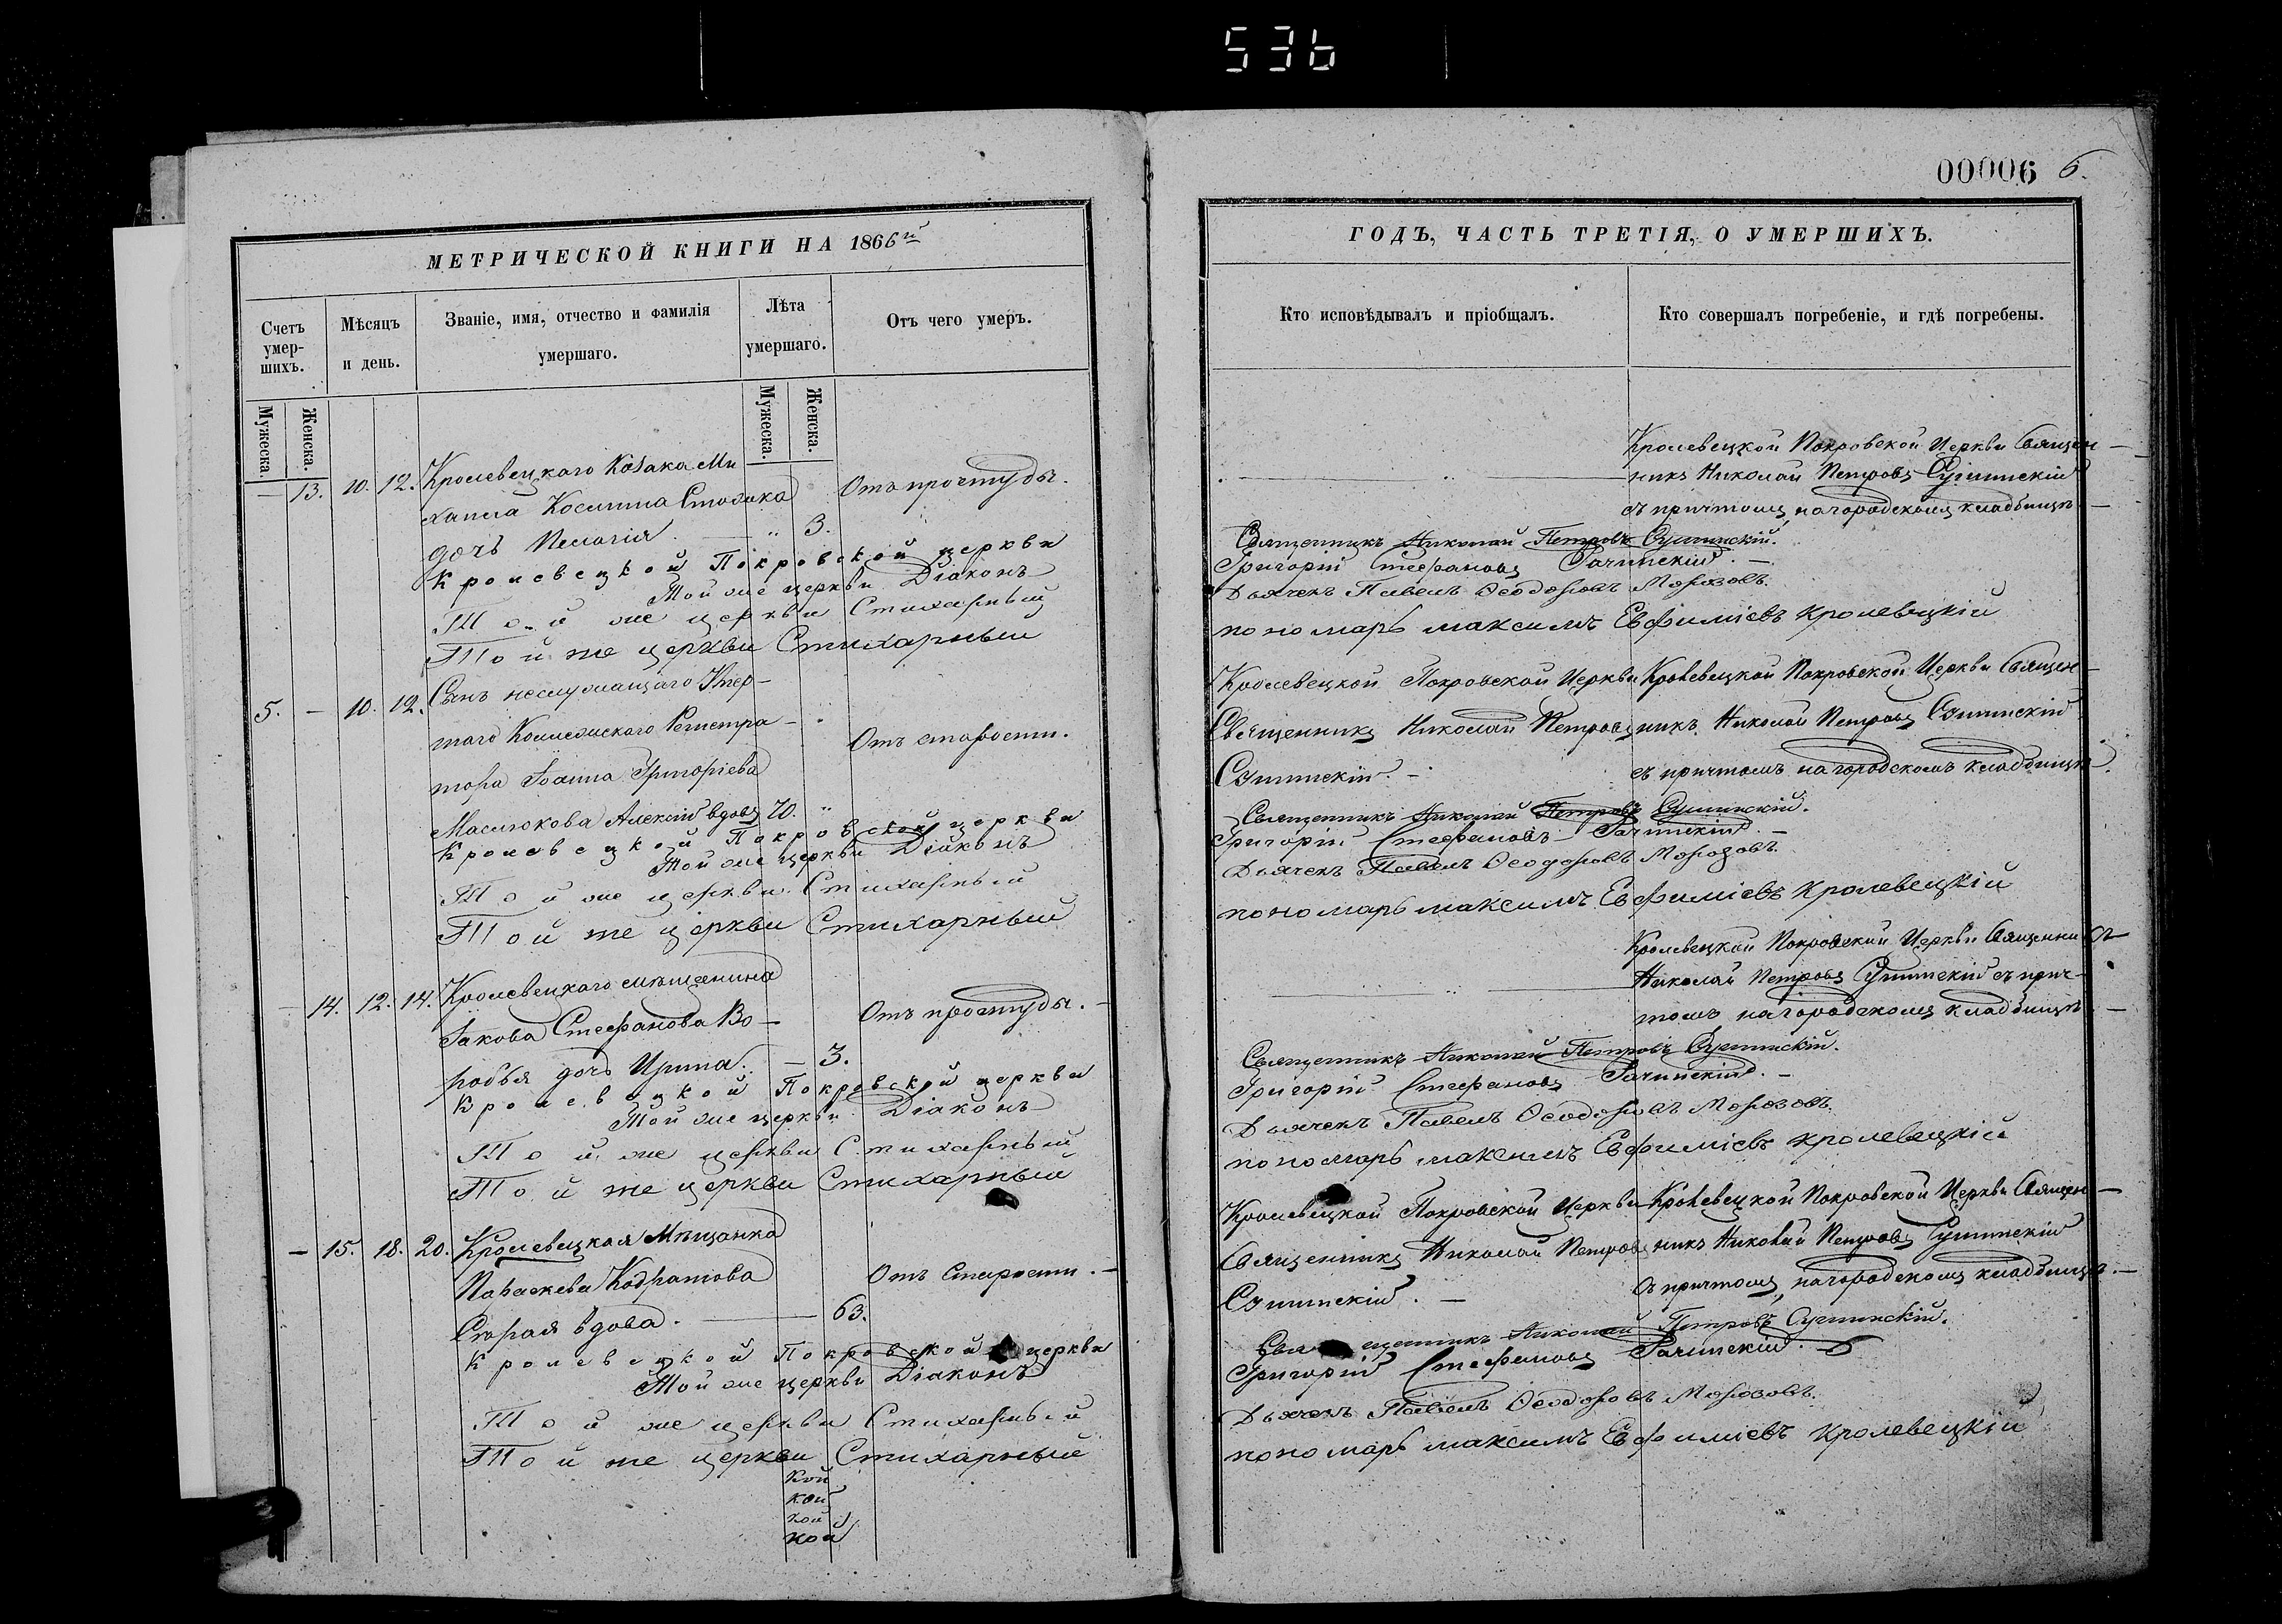 536
00006 6.
МЕТРИЧЕСКОЙ КНИГИ НА 1866й
Счетъ умер-шихъ.
Мѣсяцъ и день.
Званіе, имя, отчество и фамилія умершаго.
Лѣта умершаго.
Отъ чего умеръ.
Мужеска.
Женска.
Мужеска.
Женска.
— 13. 10. 12. Кролевецкаго Козака Ми
хаила Косьмина Отъ простуды.
дочь Пелагія. — " 3.
Кролевецкой Покровской церкви
Той же церкви Діаконъ
Той же церкви Стихарный
Той же церкви Стихарный
5. — 10. 12. Сынъ неслужащаго
Коллежскаго Регистра-
тора Іоанна Григоріева Отъ старости.
Масюкова Алексій вдовец 70. "
Кролевецкой Покровской церкви
Той же церкви Діаконъ
Той же церкви Стихарный
Той же церкви Стихарный
— 14. 12. 14. Кролевецкаго мѣщанина
Іакова Стефанова Во- Отъ простуды. —
робья дочь Ирина. — 3.
Кролевецкой Покровской церкви
Той же церкви Діаконъ
Той же церкви Стихарный
Той же церкви Стихарный
— 15. 18. 20. Кролевецкая Мѣщанка
Параскева Кодратова Отъ Старости. —
Старая вдова. — 63.
Кролевецкой Покровской церкви
Той же церкви Діаконъ
Той же церкви Стихарный
Той же церкви Стихарный
кой
кой
кой
кой
ГОДЪ, ЧАСТЬ ТРЕТІЯ, О УМЕРШИХЪ.
Кто исповѣдывалъ и пріобщалъ.
Кто совершалъ погребеніе, и гдѣ погребены.
Кролевецкой Покровской Церкви Священ—
никъ Николай Петровъ
съ причтомъ, на городскомъ кладбищѣ —
Священникъ Николай Петровъ
Григорій Стефановъ
Дьячекъ Павелъ Ѳеодоровъ Морозовъ.
пономарь максимъ Евфиміевъ кролевецкій
Кролевецкой Покровской Церкви Кролевецкой Покровской Церкви Священ—
Священникъ Николай Петровъ никъ Николай Петровъ
съ причтомъ на городскомъ кладбищѣ.
Священникъ Николай Петровъ
Григорій Стефановъ
Дьячекъ Павелъ Ѳеодоровъ Морозовъ.
пономарь максимъ Евфиміевъ кролевецкій
Кролевецкой Покровской Церкви Священникъ
Николай Петровъ съ прич-
томъ на городскомъ кладбищѣ —
Священникъ Николай Петровъ
Григорій Стефановъ
Дьячекъ Павелъ Ѳеодоровъ Морозовъ.
пономарь максимъ Евфиміевъ кролевецкій
Кролевецкой Покровской Церкви Кролевецкой Покровской Церкви Священ—
Священникъ Николай Петровъ никъ Николай Петровъ
съ причтомъ, на городскомъ кладбищѣ. —
Священникъ Николай Петровъ
Григорій Стефановъ
Дьячекъ Павелъ Ѳеодоровъ Морозовъ.
пономарь максимъ Евфиміевъ кролевецкій